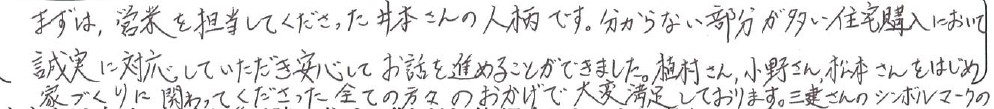 まずは，営業を担当してくださった井本さんの人柄です。分からない部分が多い住宅購入において
誠実に対応していただき安心してお話を進めることができました。植村さん，小野さん，松本さんをはじめ
家づくりに関わってくださった全ての方々のおかげで大変満足しております。三建さんのシンボルマークの